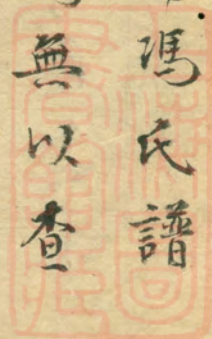 馮氏譜
無以查